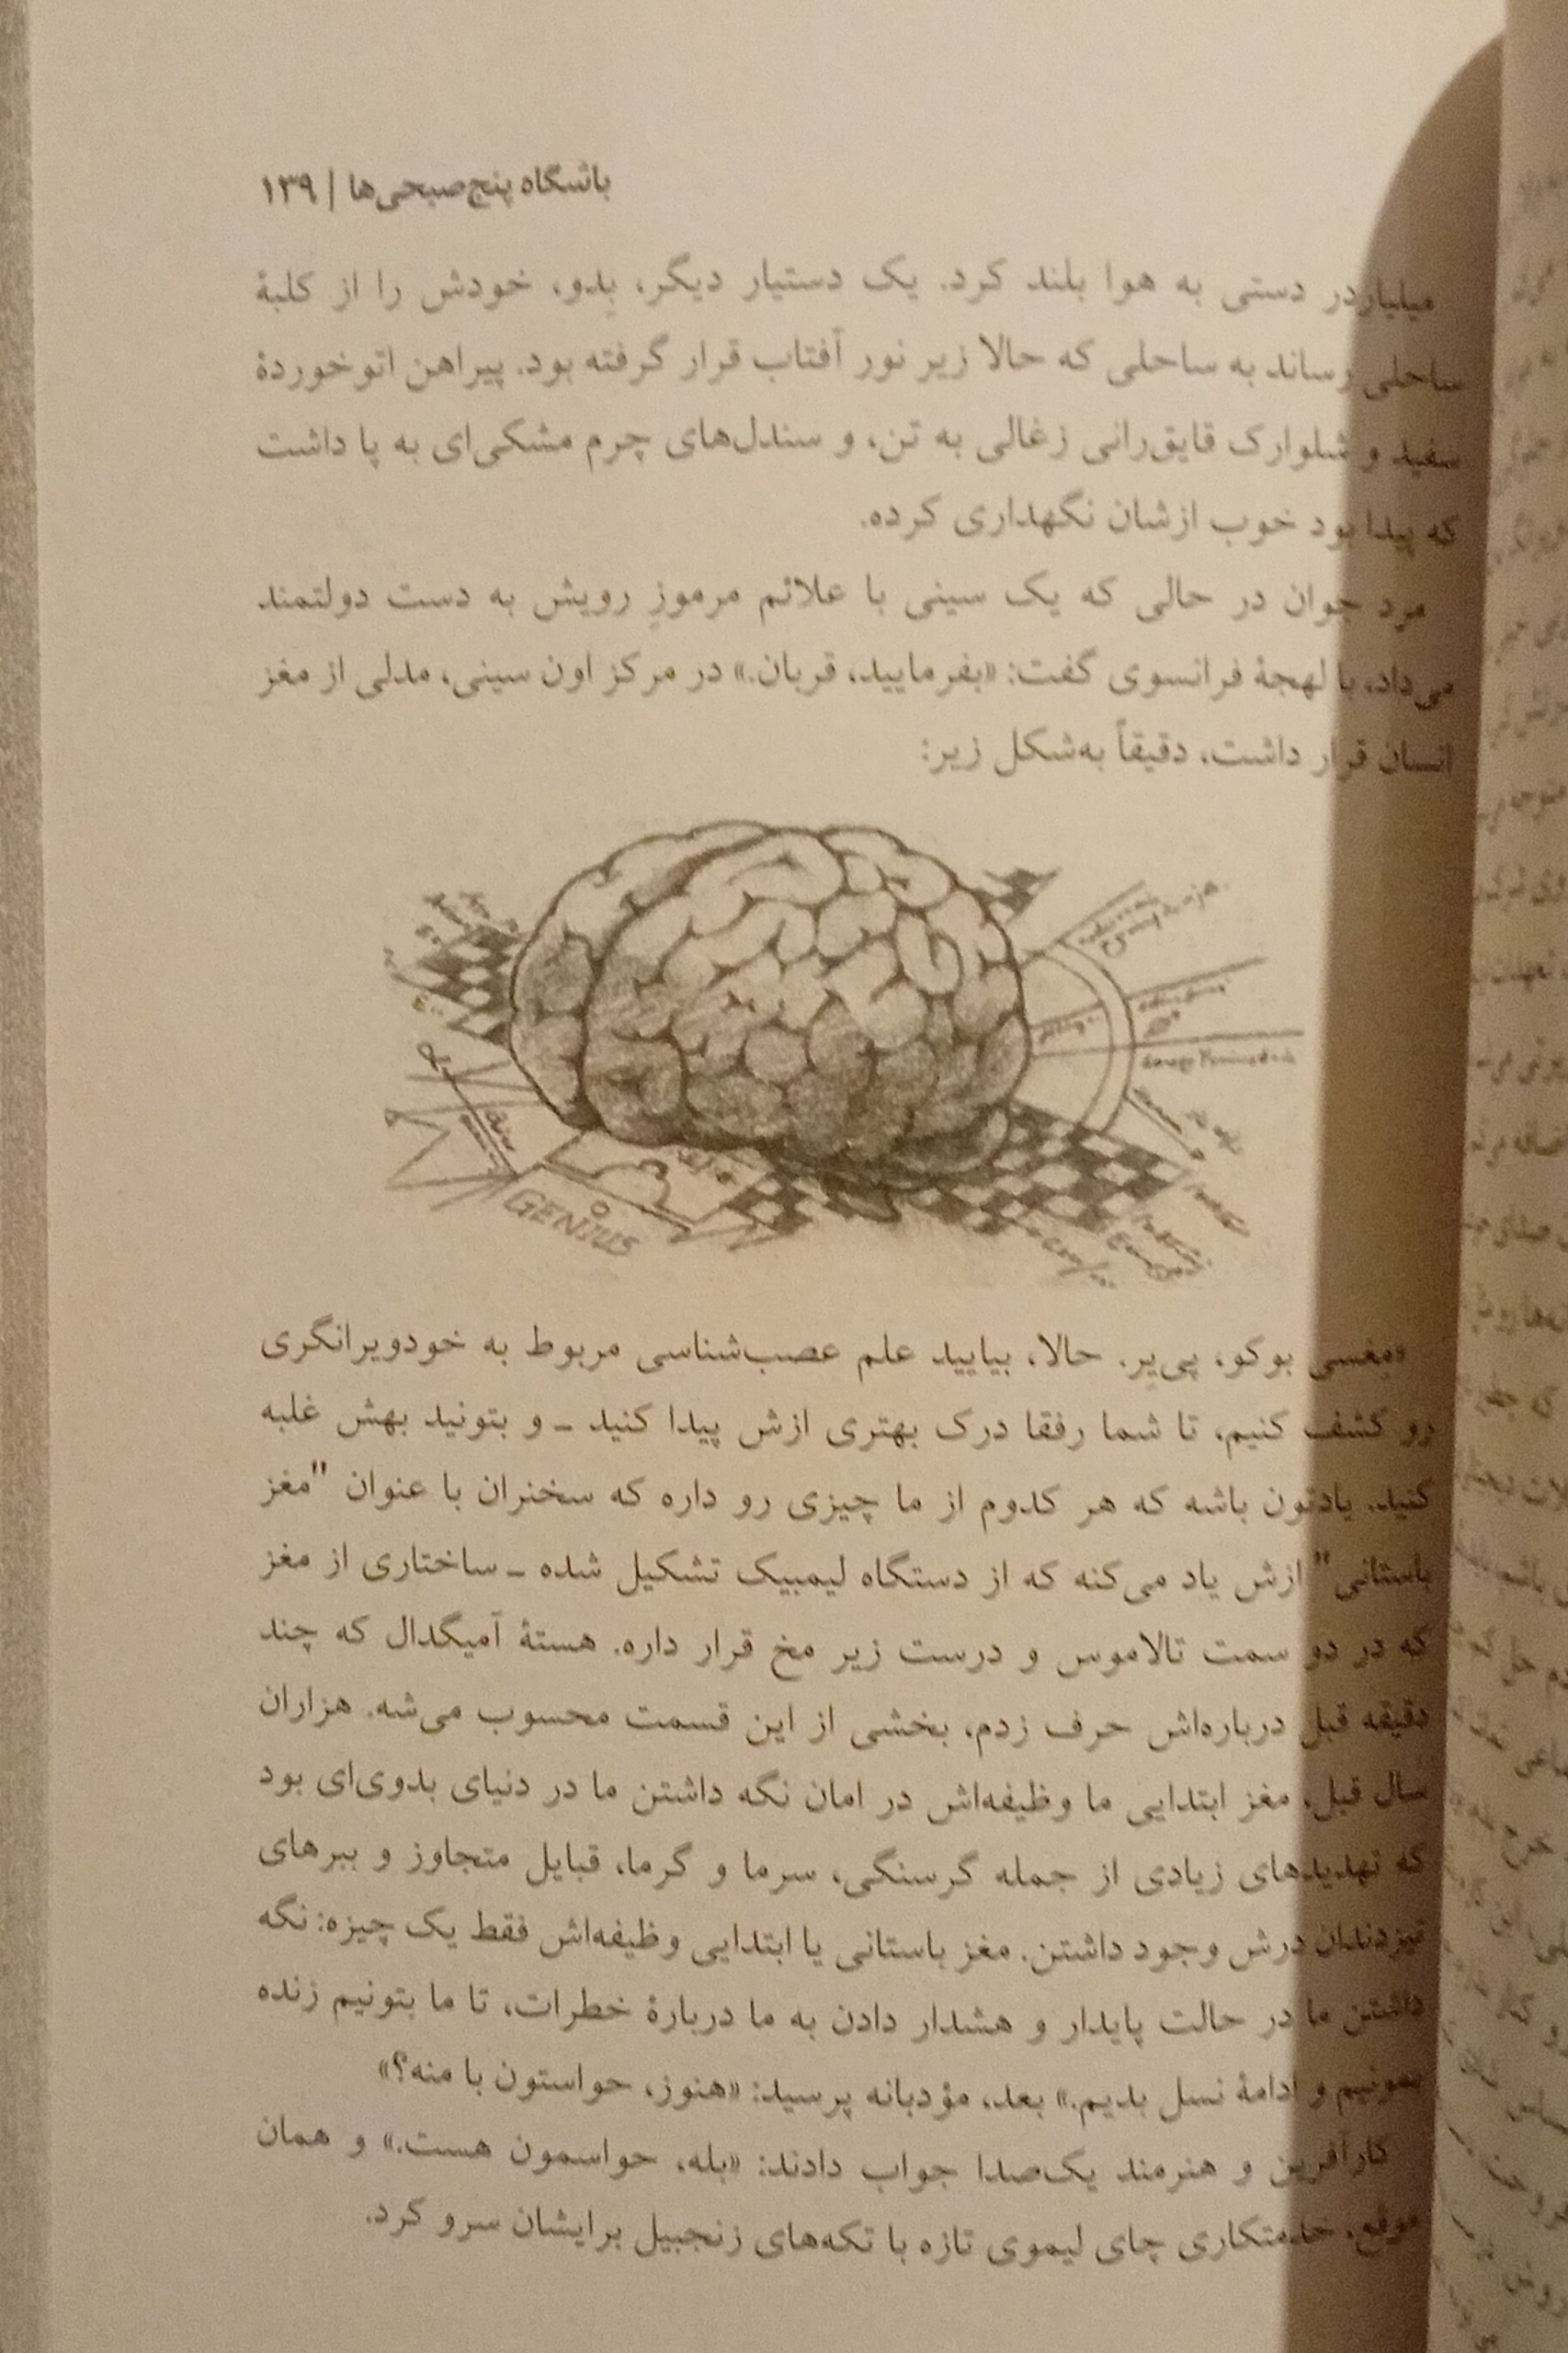 باشگاه پنج‌صبحی‌ها | ۱۳۹
میلیاردر دستی به هوا بلند کرد. یک دستیار دیگر، بِدو، خودش را از کلبهٔ
ساحلی رساند به ساحلی که حالا زیر نور آفتاب قرار گرفته بود. پیراهن اتوخوردهٔ
سفید و شلوارک قایق‌رانی زغالی به تن، و سندل‌های چرم مشکی‌ای به پا داشت
که پیدا بود خوب ازشان نگهداری کرده.
مرد جوان در حالی که یک سینی با علائم مرموزِ رویش به دست دولتمند
می‌داد، با لهجهٔ فرانسوی گفت: «بفرمایید، قربان.» در مرکز اون سینی، مدلی از مغز
انسان قرار داشت، دقیقاً به‌شکل زیر:
GENIUS
«مِغسی بوکو، پی‌یِر. حالا، بیایید علم عصب‌شناسی مربوط به خودویرانگری
رو کشف کنیم، تا شما رفقا درک بهتری ازش پیدا کنید ـ و بتونید بهش غلبه
کنید. یادتون باشه که هر کدوم از ما چیزی رو داره که سخنران با عنوان "مغز
باستانی" ازش یاد می‌کنه که از دستگاه لیمبیک تشکیل شده ـ ساختاری از مغز
که در دو سمت تالاموس و درست زیر مخ قرار داره. هستهٔ آمیگدال که چند
دقیقه قبل درباره‌اش حرف زدم، بخشی از این قسمت محسوب می‌شه. هزاران
سال قبل، مغز ابتدایی ما وظیفه‌اش در امان نگه داشتن ما در دنیای بدوی‌ای بود
که تهدیدهای زیادی از جمله گرسنگی، سرما و گرما، قبایل متجاوز و ببرهای
تیزدندان درش وجود داشتن. مغز باستانی یا ابتدایی وظیفه‌اش فقط یک چیزه: نگه
داشتن ما در حالت پایدار و هشدار دادن به ما دربارهٔ خطرات، تا ما بتونیم زنده
بمونیم و ادامهٔ نسل بدیم.» بعد، مؤدبانه پرسید: «هنوز، حواستون با منه؟»
کارآفرین و هنرمند یک‌صدا جواب دادند: «بله، حواسمون هست.» و همان
موقع، خدمتکاری چای لیموی تازه با تکه‌های زنجبیل برایشان سرو کرد.